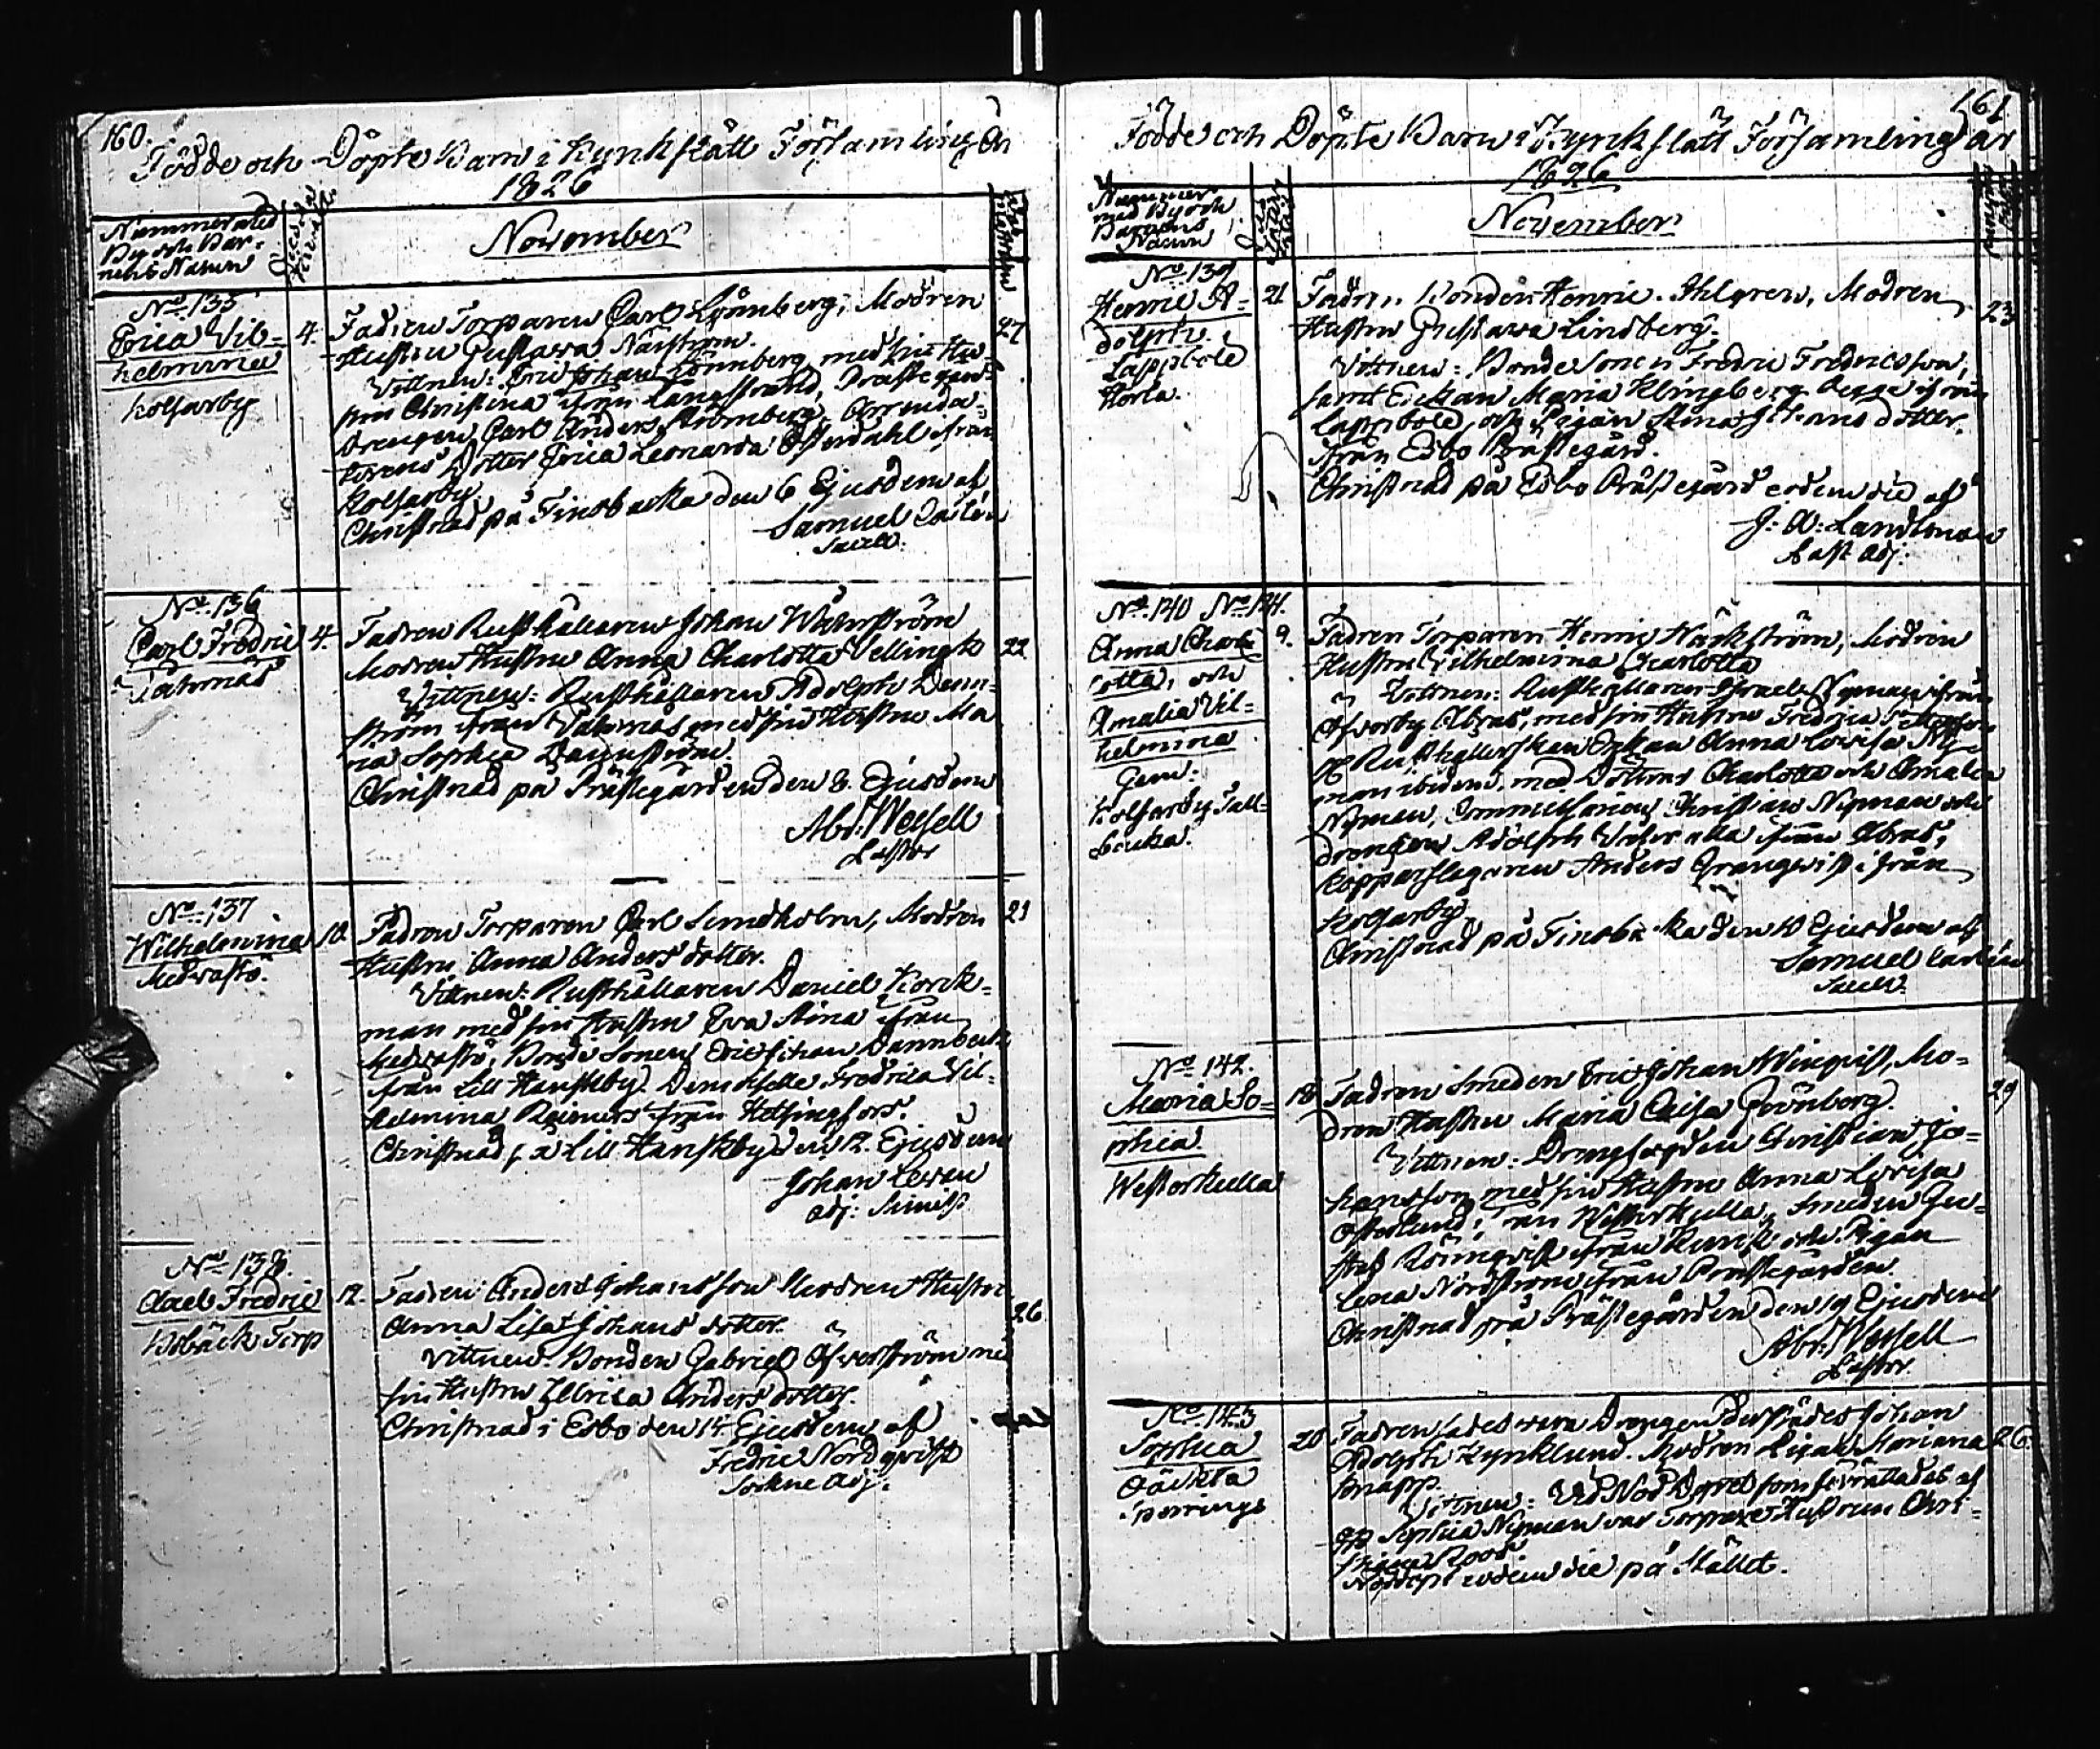 160.
Födde och Döpte Barn i Kyrkslätt Församling år
1826
Nummer med
By och Bar-
nens Namn
November
No. 135
Erica Vil-
helmina
Kolsarby
4.
Fadren Torparen Carl Lönnberg, Modren
27
Hustru Gustava Närström.
Vittnen: Eric Johan Lönnberg med sin Hu-
stru Christina från Långstrand, Prästegårds
Drengen Carl Anders Strömberg, Arrenda-
torens Dotter Erica Leonarda Österdahl från
Kolsarby.
Christnad på Finsbacka den 6 Ejusdem af
Samuel Carlén
Sacell.
No. 136
Carl Fredric
4.
Fadren Rusthållaren Johan
Modren Hustru Anna Charlotta Vellingk
22
Vittnen: Rusthållaren Adolph
ström från med sin Hustru Ma
ria Sophia
Christnad på Prästegården den 8. Ejusdem
Abr: Wessell
Pastor
No. 137
Wilhelmina
Medvastö.
10.
Fadren Torparen Carl Lindholm, Modren
21
Hustru Anna Anders dotter.
Vittnen: Rusthållaren Daniel Korck-
man med sin Hustru Eva Stina från
Medvastö, Bonde Sonen Eric Johan Dannbeck
från Lill Kanskby. Demoiselle Fredrica Vil-
helmina Reimers från Helsingfors.
Christnad på Lill Kanskby den 12. Ejusdem
Johan Leren
adj: Simis.
No. 138.
Axel Fredric
Torp
12.
Fadren Anders Johansson Modren Hustru
26
Anna Lisa Johans dotter.
Vittnen: Bonden Gabriel Öfverström med
sin Hustru Ulrica Anders dotter.
Christnad i Esbo den 14 Ejusdem af
Fredric Nordqvist
Sockne Adj.
161
Födde och Döpte Barn i Kyrkslätt Församling år
1826
Nummer
med By och
Barnens
Namn
November
No. 139
Henric A-
dolph.
Lappböle
Horla.
21
Fadren Bonden Henric Ahlgren, Modren
23
Hustru Gustava Lindberg.
Vittnen: Bonde Sonen Fredric Fredricsson,
samt Enkan Maria Klingberg begge ifrån
Lappböle, och Pigan Stina Johans dotter.
från Esbo Prästegård.
Christnad på Esbo Prästegård eodem die af
J: A: Landtman
Past Adj:
No. 140 No. 141.
Anna Char-
lotta, och
Amalia Vil-
helmina
Gem:
Kolsarby Tall-
backa.
9.
Fadren Torparen Henric Härkström, Modren
Hustru Vilhelmina Charlotta
Vittnen: Rusthållaren Israel Nyman ifrån
Öfverby Åbras, med sin Hustru Fredrica
Rusthållerskan Enkan Anna Lovisa Ny-
man ibidem, med Döttrar Charlotta och Amalia
Nyman, Christian Nyman och
drengen Adolph alla ifrån Åbras,
Kopparslagaren Anders Granqvist ifrån
Kolsarby
Christnad på Finsbacka den 10 Ejusdem af
Samuel Carlén
Sacell.
No. 142.
Maria So-
phia
Westerkulla
18
Fadren Smeden Eric Johan Winqvist, Mo-
29
dren Hustru Maria Caisa Grönberg.
Vittnen: Drengfogden Christian Jo-
hansson med sin Hustru Anna Lovisa
Österlund från Westerkulla, Smeden Gu-
staf Rönnqvist från och Pigan
Lena Nordström från Prästegården.
Christnad på Prästegården den 19 Ejusdem
Abr: Wessell
Pastor.
No. 143
Sophia
Oäckta
20
Fadren sades vara Drengen Johan
Adolph Kyrklund. Modren Pigan Mariana
26.
Knapp.
Vittnen: Vid Nöd Dopet som förrättades af
Sophia Nyman var Torpare Hustrun Chri-
stina Roos.
Nöddöpt eodem die på Stället.